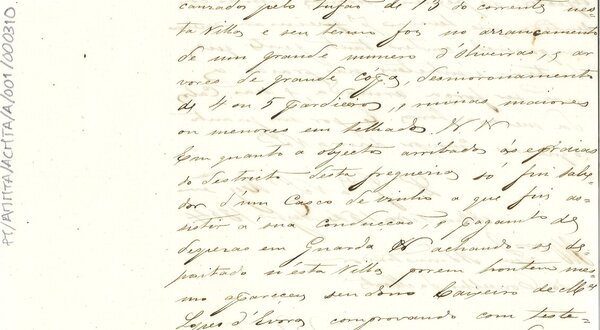 cauzados pelo tufão de 13 do corrente nes=
ta Villa e seu termo foi no arrancamento
de um grande numero d'oliveiras, e ar
vores de grande cópa, desmoronamento
de 4 ou 5 pardieiros, e ruinas maiores
ou menores em telhados
Em quanto a objectos arribados ás praias
do destricto desta freguezia só fui sabe-
dor d'um Casco de vinho a que fui as-
sistir á sua conducção, e pagamto de
despezas em Guarda achando-se de-
pozitado n'ésta Villa porem hontem mes=
mo apareceu seu dono Caixeiro de Mel
Lopes d'Evora comprovando com teste=
PT/AMMTA/ACMTA/A/001/000310